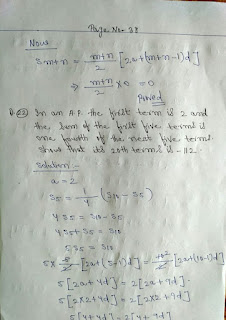 Page No:- 38
Now
Sm+n = m+n/2 [2a+(m+n-1)d]
⇒ m+n/2 × 0 = 0
Proved
Q.22) In an A.P. the first term is 2 and
the sum of the first five terms is
one fourth of the next five terms.
Show that its 20th term is -112.
Solution:-
a = 2
S5 = 1/4 (S10 - S5)
4S5 = S10 - S5
4S5 + S5 = S10
5S5 = S10
5× 5/2 [2a+(5-1)d] = 10/2 [2a+(10-1)d]
5[2a+4d] = 2[2a+9d]
5[2×2+4d] = 2[2×2+9d]
5[4+4d] = 2[4+9d]